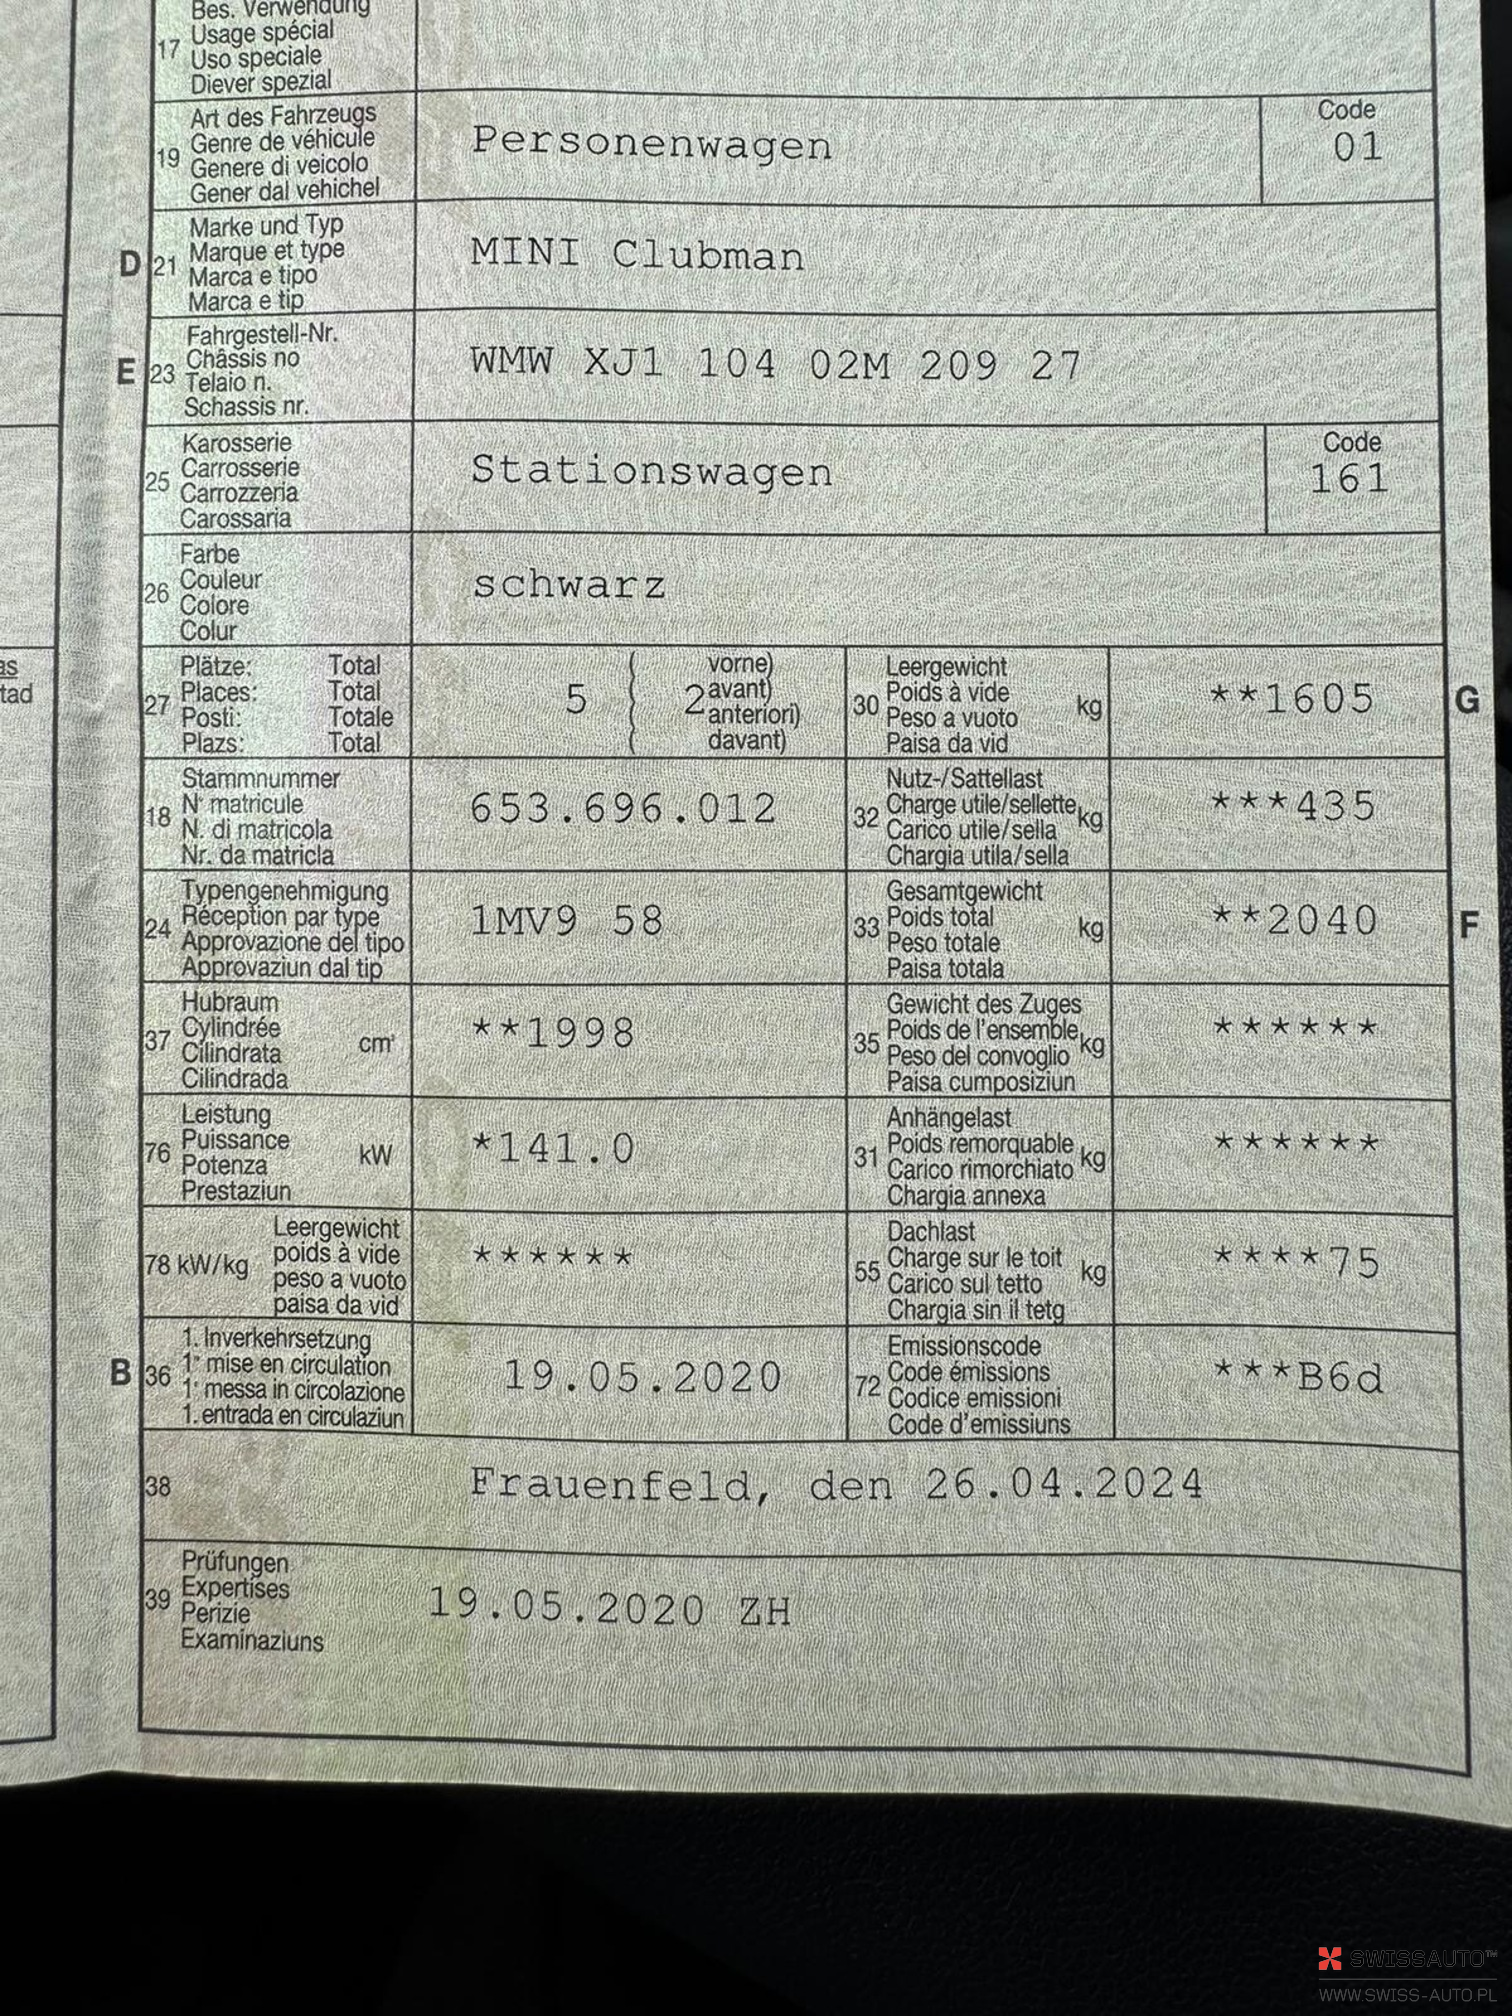 Bes. Verwendung
17 Usage spécial
Uso speciale
Diever spezial
Art des Fahrzeugs
19 Genre de véhicule
Genere di veicolo
Gener dal vehichel
Personenwagen
Code
01
D 21 Marke und Typ
Marque et type
Marca e tipo
Marca e tip
MINI Clubman
E 23 Fahrgestell-Nr.
Châssis no
Telaio n.
Schassis nr.
WMW XJ1 104 02M 209 27
25 Karosserie
Carrosserie
Carrozzeria
Carossaria
Stationswagen
Code
161
26 Farbe
Couleur
Colore
Colur
schwarz
27 Plätze: Total
Places: Total
Posti: Totale
Plazs: Total
5 ( 2 vorne)
avant)
anteriori)
davant)
30 Leergewicht
Poids à vide kg
Peso a vuoto
Paisa da vid
**1605 G
18 Stammnummer
N° matricule
N. di matricola
Nr. da matricla
653.696.012
32 Nutz-/Sattellast
Charge utile/sellette kg
Carico utile/sella
Chargia utila/sella
***435
24 Typengenehmigung
Réception par type
Approvazione del tipo
Approvaziun dal tip
1MV9 58
33 Gesamtgewicht
Poids total kg
Peso totale
Paisa totala
**2040 F
37 Hubraum
Cylindrée cm³
Cilindrata
Cilindrada
**1998
35 Gewicht des Zuges
Poids de l'ensemble kg
Peso del convoglio
Paisa cumposiziun
******
76 Leistung
Puissance kW
Potenza
Prestaziun
*141.0
31 Anhängelast
Poids remorquable kg
Carico rimorchiato
Chargia annexa
******
78 kW/kg Leergewicht
poids à vide
peso a vuoto
paisa da vid
******
55 Dachlast
Charge sur le toit kg
Carico sul tetto
Chargia sin il tetg
****75
B 36 1. Inverkehrsetzung
1re mise en circulation
1a messa in circolazione
1. entrada en circulaziun
19.05.2020
72 Emissionscode
Code émissions
Codice emissioni
Code d'emissiuns
***B6d
38 Frauenfeld, den 26.04.2024
39 Prüfungen
Expertises
Perizie
Examinaziuns
19.05.2020 ZH
as
tad
SWISSAUTO™
WWW.SWISS-AUTO.PL